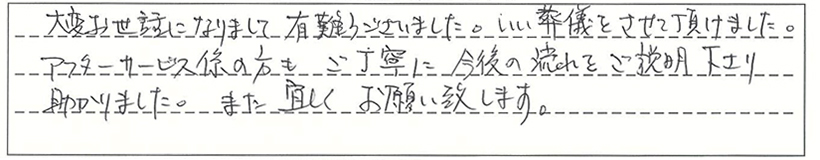 大変お世話になりまして有難うございました。いい葬儀をさせて頂けました。
アフターサービス係の方も ご丁寧に 今後の流れをご説明下さり
助かりました。 また 宜しく お願い致します。